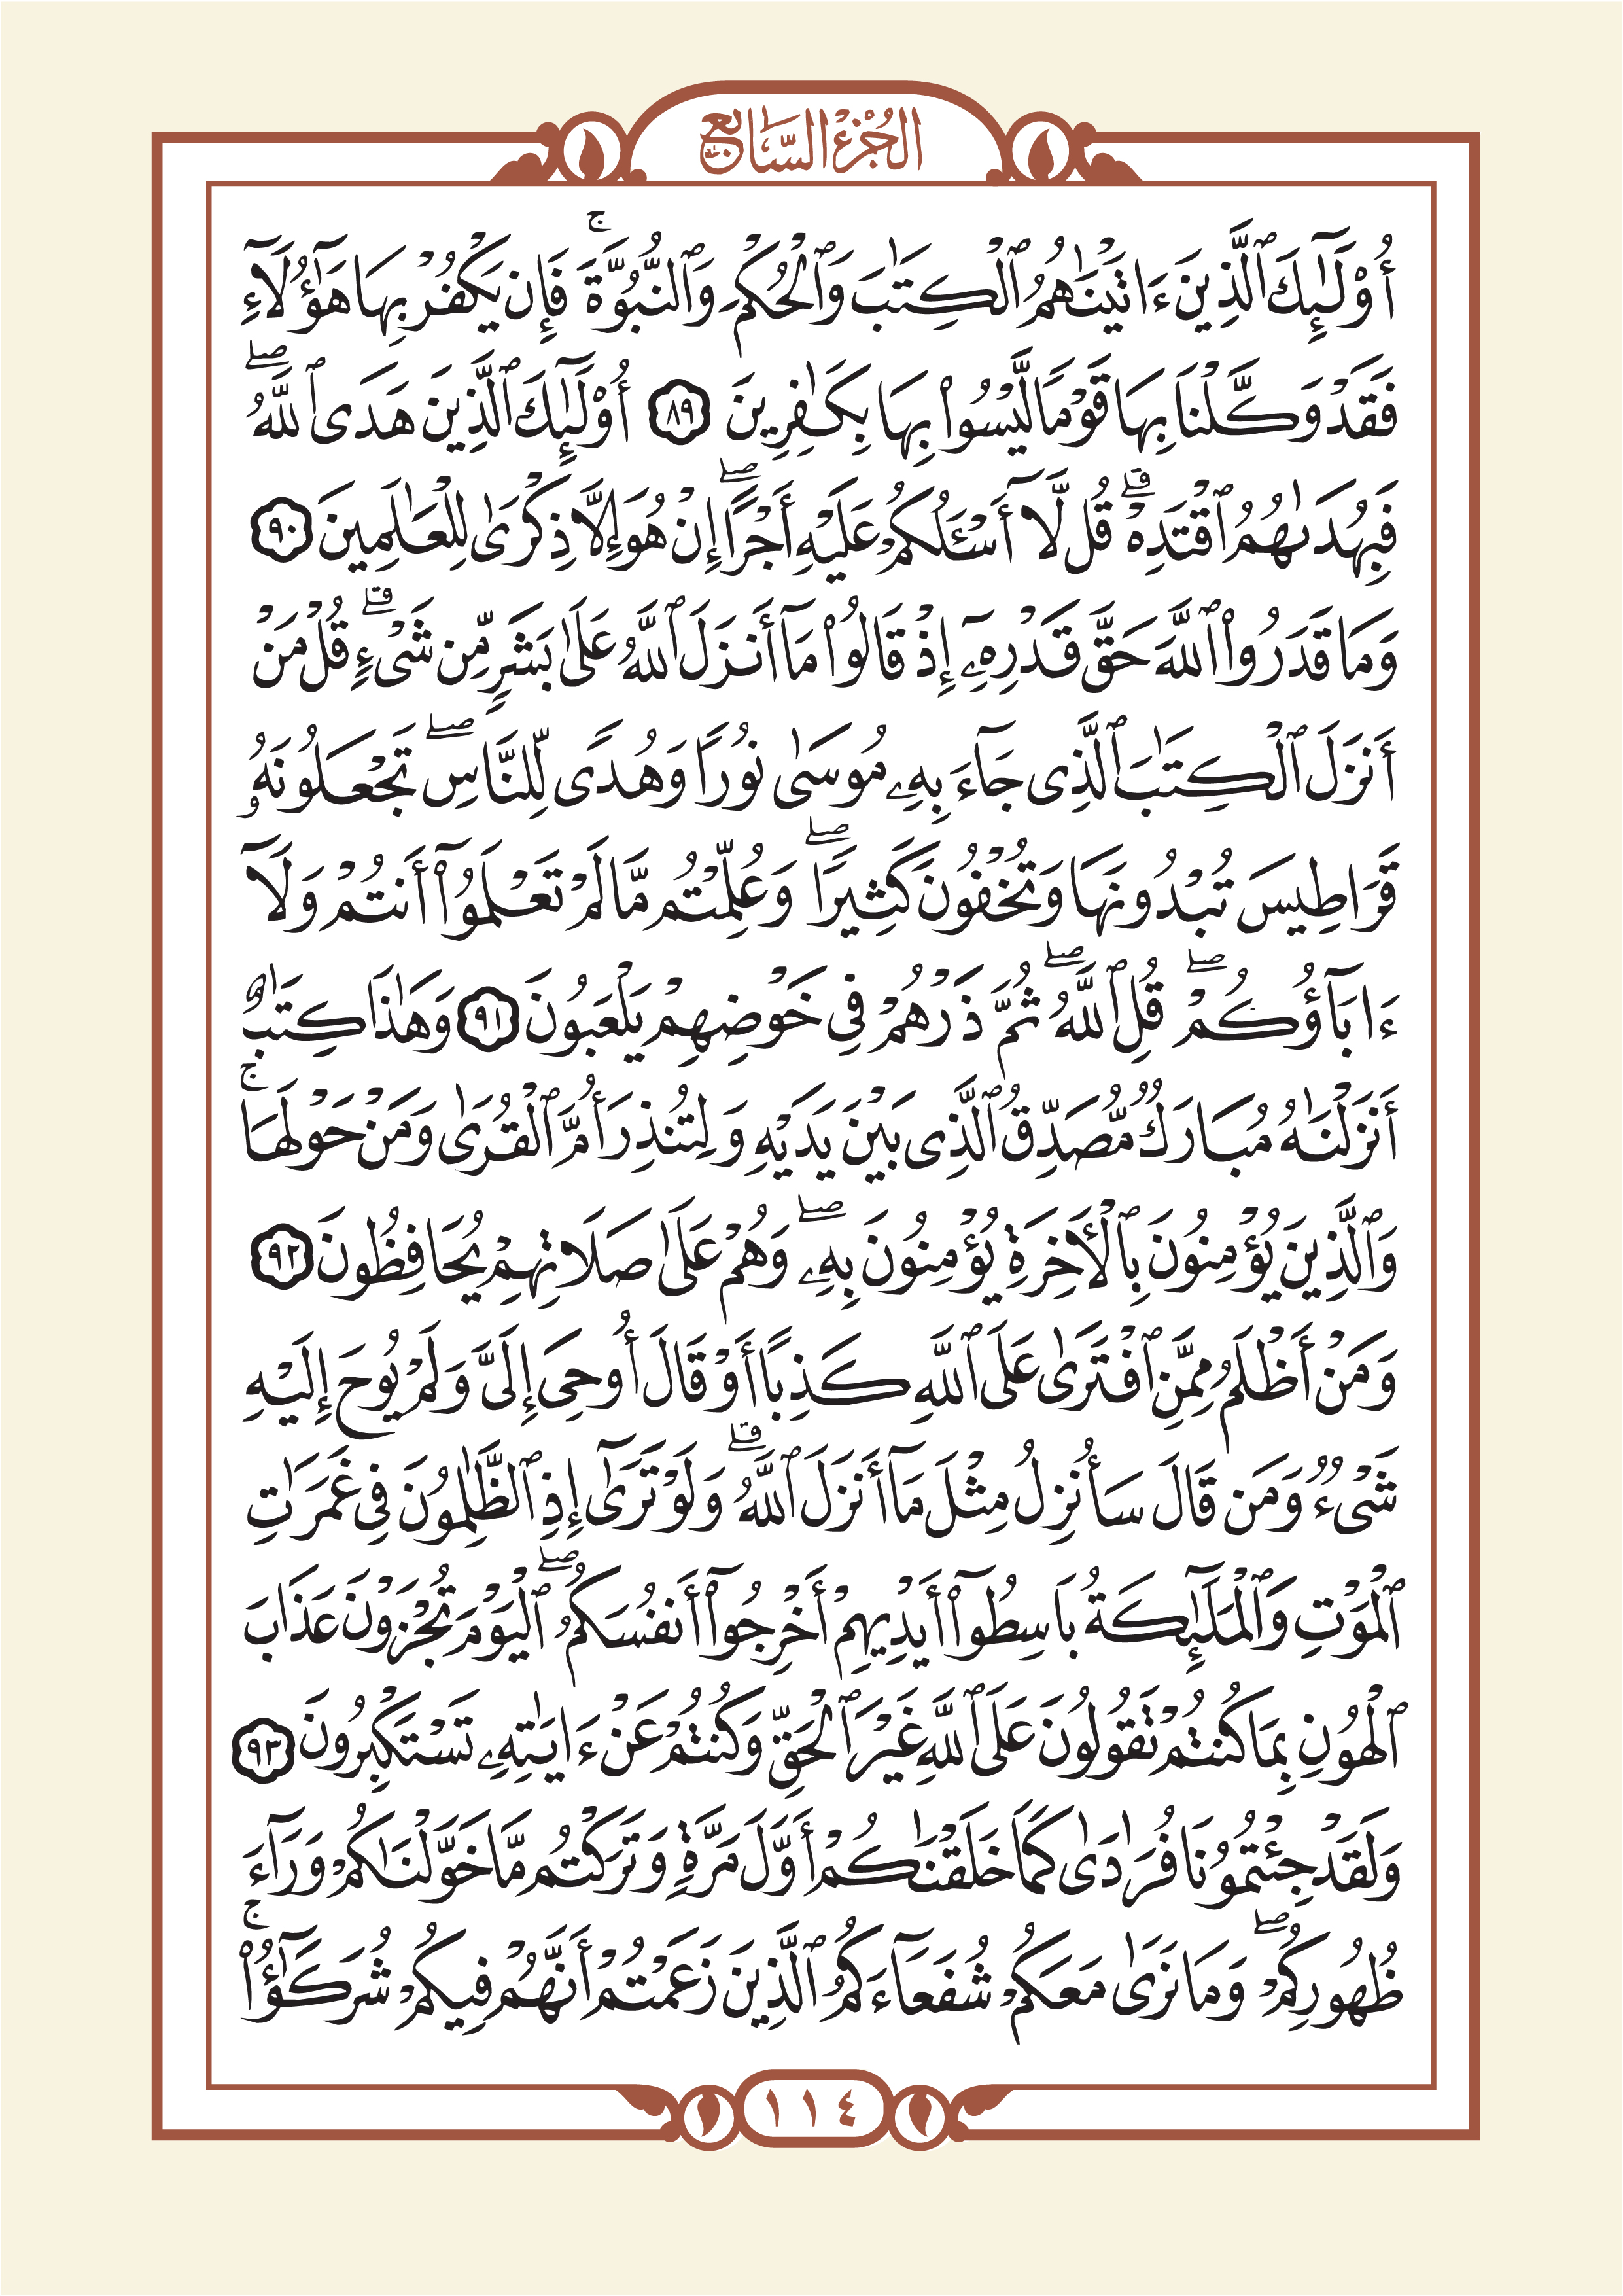 الجُزْءُ السَّابِعُ
أُوْلَٰٓئِكَ ٱلَّذِينَ ءَاتَيْنَٰهُمُ ٱلْكِتَٰبَ وَٱلْحُكْمَ وَٱلنُّبُوَّةَ ۚ فَإِن يَكْفُرْ بِهَا هَٰٓؤُلَآءِ
فَقَدْ وَكَّلْنَا بِهَا قَوْمًا لَّيْسُوا۟ بِهَا بِكَٰفِرِينَ ٨٩ أُوْلَٰٓئِكَ ٱلَّذِينَ هَدَى ٱللَّهُ ۖ
فَبِهُدَىٰهُمُ ٱقْتَدِهْ ۗ قُل لَّآ أَسْـَٔلُكُمْ عَلَيْهِ أَجْرًا ۖ إِنْ هُوَ إِلَّا ذِكْرَىٰ لِلْعَٰلَمِينَ ٩٠
وَمَا قَدَرُوا۟ ٱللَّهَ حَقَّ قَدْرِهِۦٓ إِذْ قَالُوا۟ مَآ أَنزَلَ ٱللَّهُ عَلَىٰ بَشَرٍ مِّن شَىْءٍ ۗ قُلْ مَنْ
أَنزَلَ ٱلْكِتَٰبَ ٱلَّذِى جَآءَ بِهِۦ مُوسَىٰ نُورًا وَهُدًى لِّلنَّاسِ ۖ تَجْعَلُونَهُۥ
قَرَاطِيسَ تُبْدُونَهَا وَتُخْفُونَ كَثِيرًا ۖ وَعُلِّمْتُم مَّا لَمْ تَعْلَمُوٓا۟ أَنتُمْ وَلَآ
ءَابَآؤُكُمْ ۖ قُلِ ٱللَّهُ ۖ ثُمَّ ذَرْهُمْ فِى خَوْضِهِمْ يَلْعَبُونَ ٩١ وَهَٰذَا كِتَٰبٌ
أَنزَلْنَٰهُ مُبَارَكٌ مُّصَدِّقُ ٱلَّذِى بَيْنَ يَدَيْهِ وَلِتُنذِرَ أُمَّ ٱلْقُرَىٰ وَمَنْ حَوْلَهَا ۚ
وَٱلَّذِينَ يُؤْمِنُونَ بِٱلْأَخِرَةِ يُؤْمِنُونَ بِهِۦ ۖ وَهُمْ عَلَىٰ صَلَاتِهِمْ يُحَافِظُونَ ٩٢
وَمَنْ أَظْلَمُ مِمَّنِ ٱفْتَرَىٰ عَلَى ٱللَّهِ كَذِبًا أَوْ قَالَ أُوحِىَ إِلَىَّ وَلَمْ يُوحَ إِلَيْهِ
شَىْءٌ وَمَن قَالَ سَأُنزِلُ مِثْلَ مَآ أَنزَلَ ٱللَّهُ ۗ وَلَوْ تَرَىٰٓ إِذِ ٱلظَّٰلِمُونَ فِى غَمَرَٰتِ
ٱلْمَوْتِ وَٱلْمَلَٰٓئِكَةُ بَاسِطُوٓا۟ أَيْدِيهِمْ أَخْرِجُوٓا۟ أَنفُسَكُمُ ۖ ٱلْيَوْمَ تُجْزَوْنَ عَذَابَ
ٱلْهُونِ بِمَا كُنتُمْ تَقُولُونَ عَلَى ٱللَّهِ غَيْرَ ٱلْحَقِّ وَكُنتُمْ عَنْ ءَايَٰتِهِۦ تَسْتَكْبِرُونَ ٩٣
وَلَقَدْ جِئْتُمُونَا فُرَٰدَىٰ كَمَا خَلَقْنَٰكُمْ أَوَّلَ مَرَّةٍ وَتَرَكْتُم مَّا خَوَّلْنَٰكُمْ وَرَآءَ
ظُهُورِكُمْ ۖ وَمَا نَرَىٰ مَعَكُمْ شُفَعَآءَكُمُ ٱلَّذِينَ زَعَمْتُمْ أَنَّهُمْ فِيكُمْ شُرَكَٰٓؤُا۟ ۚ
١١٤